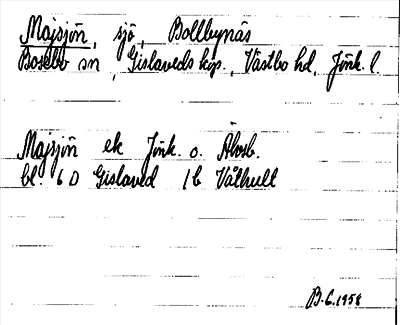 Majsjön, sjö, Bollbynäs
Bosebo sn, Gislaveds kpg., Västbo hd, Jönk. l.
Majsjön ek Jönk. o. Älvsb.
bl. 6 D Gislaved 1 b Våthult
B.G. 1958